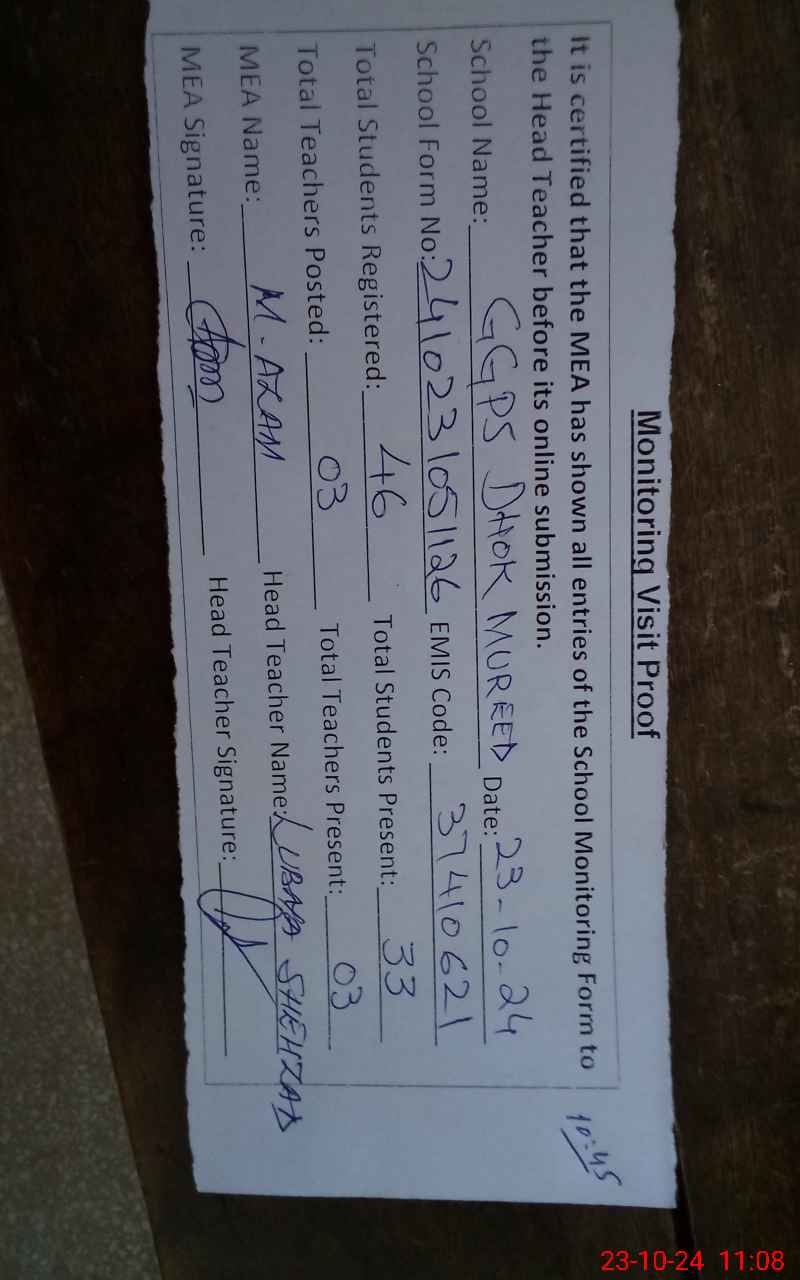 Monitoring Visit Proof
It is certified that the MEA has shown all entries of the School Monitoring Form to
the Head Teacher before its online submission.
10:45
School Name: GGPS DHOK MUREED Date: 23-10-24
School Form No: 2410231051126 EMIS Code: 37410621
Total Students Registered: 46 Total Students Present: 33
Total Teachers Posted: 03 Total Teachers Present: 03
MEA Name: M. AZAM Head Teacher Name: LUBNA SHEHZAD
MEA Signature: Head Teacher Signature:
23-10-24 11:08